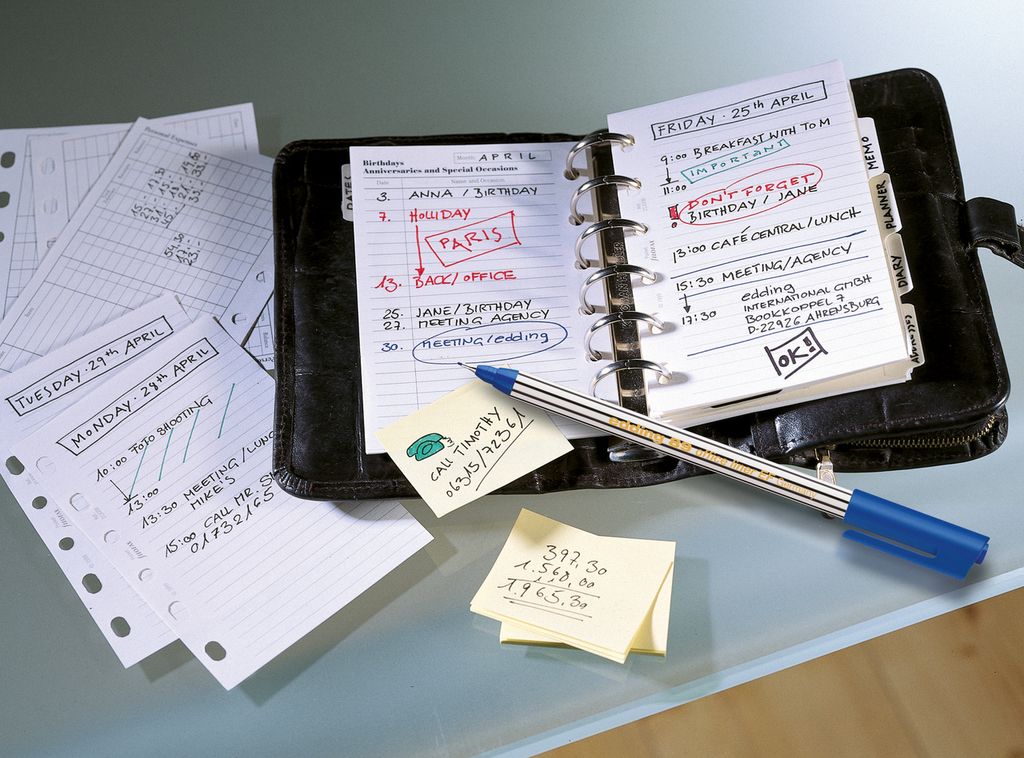 Personal Expenses
TUESDAY · 29th APRIL
MONDAY · 28th APRIL
10:00 FOTO SHOOTING
13:00
13:30 MEETING/LUNC
MIKE'S
15:00 CALL MR. S
01732165
DATES
Birthdays
Anniversaries and Special Occasions
Month APRIL
Date Name and Occasion
3. ANNA / BIRTHDAY
7. HOLLIDAY
PARIS
13. BACK/OFFICE
25. JANE/BIRTHDAY
27. MEETING AGENCY
30. MEETING/edding
FRIDAY · 25th APRIL
9:00 BREAKFAST WITH TOM
IMPORTANT
11:00
DON'T FORGET
BIRTHDAY / JANE
13:00 CAFÉ CENTRAL/LUNCH
15:30 MEETING/AGENCY
edding
INTERNATIONAL GMBH
17:30 BOOKKOPPEL 7
D-22926 AHRENSBURG
OK!
MEMO
PLANNER
DIARY
ADDRESSES
CALL TIMOTHY
06315/72361
edding 88 office liner EF Germany
397,30
1.568,00
1.965,30